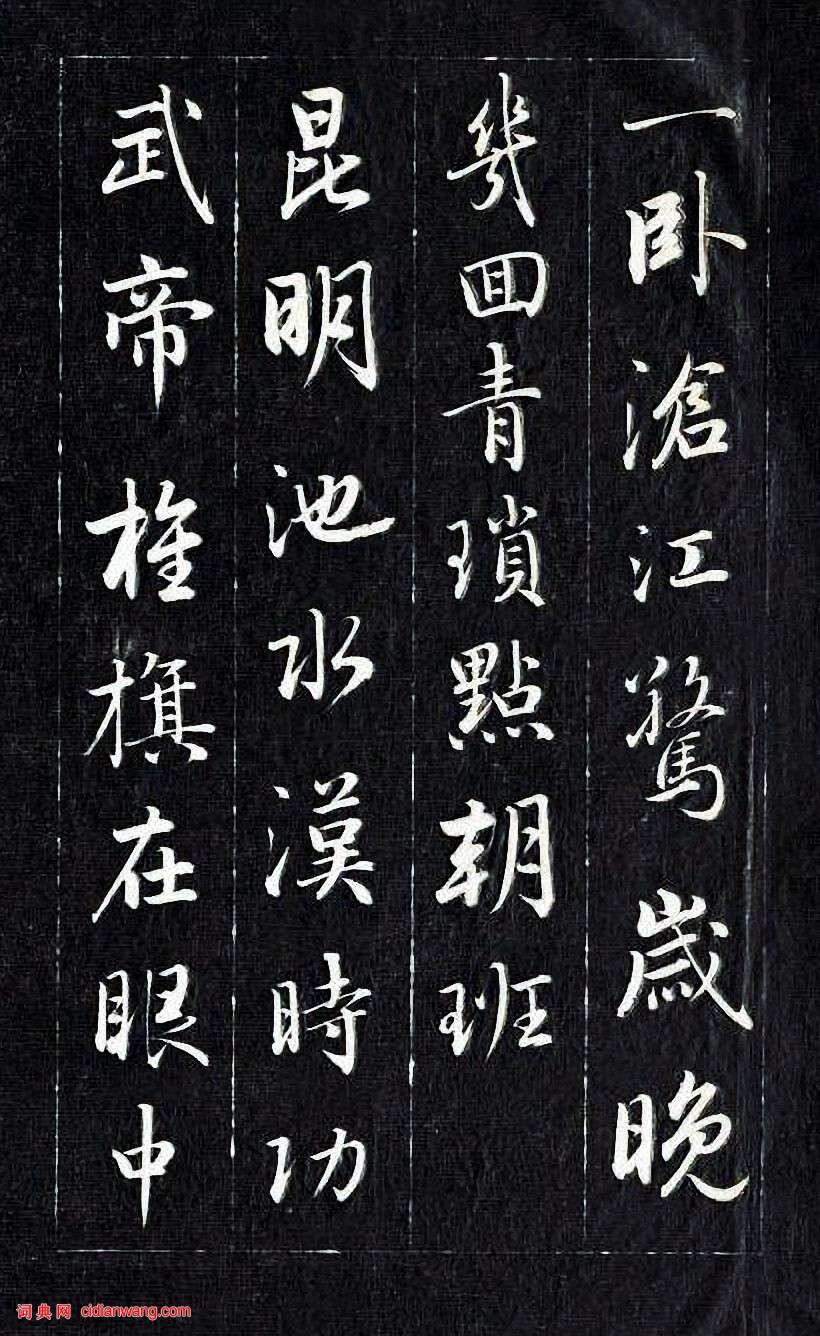 一卧滄江驚歲晚
幾回青瑣點朝班
昆明池水漢時功
武帝旌旗在眼中
词典网 cidianwang.com